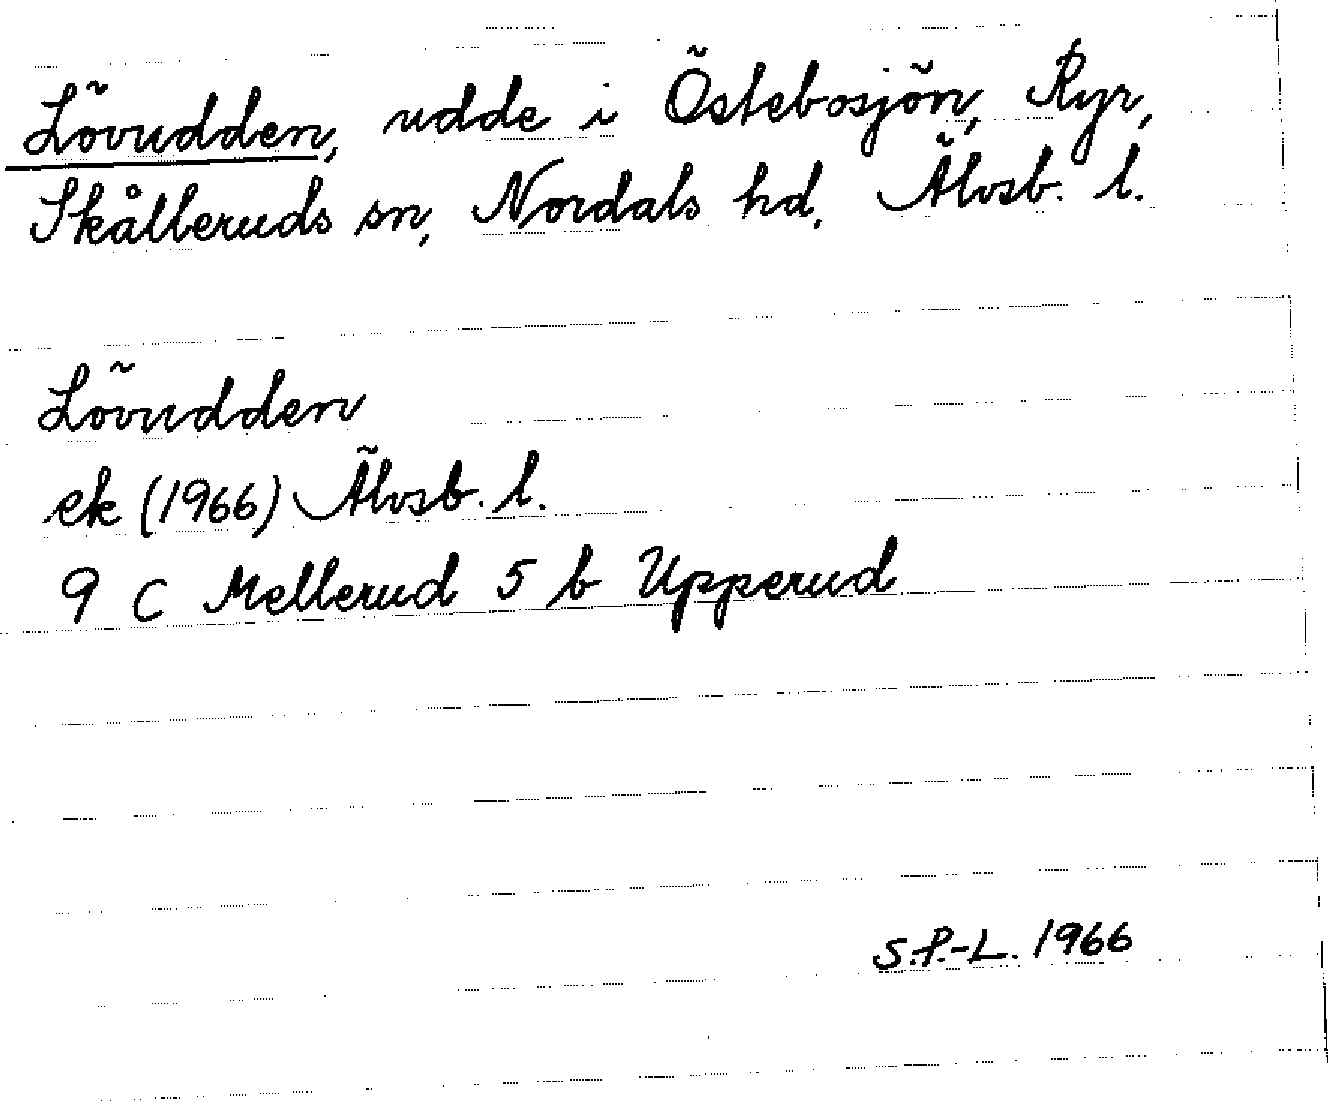 Lövudden, udde i Östebosjön, Ryr,
Skålleruds sn, Nordals hd, Älvsb. l.
Lövudden
ek (1966) Älvsb. l.
9 C Mellerud 5 b Upperud
S.P.-L. 1966